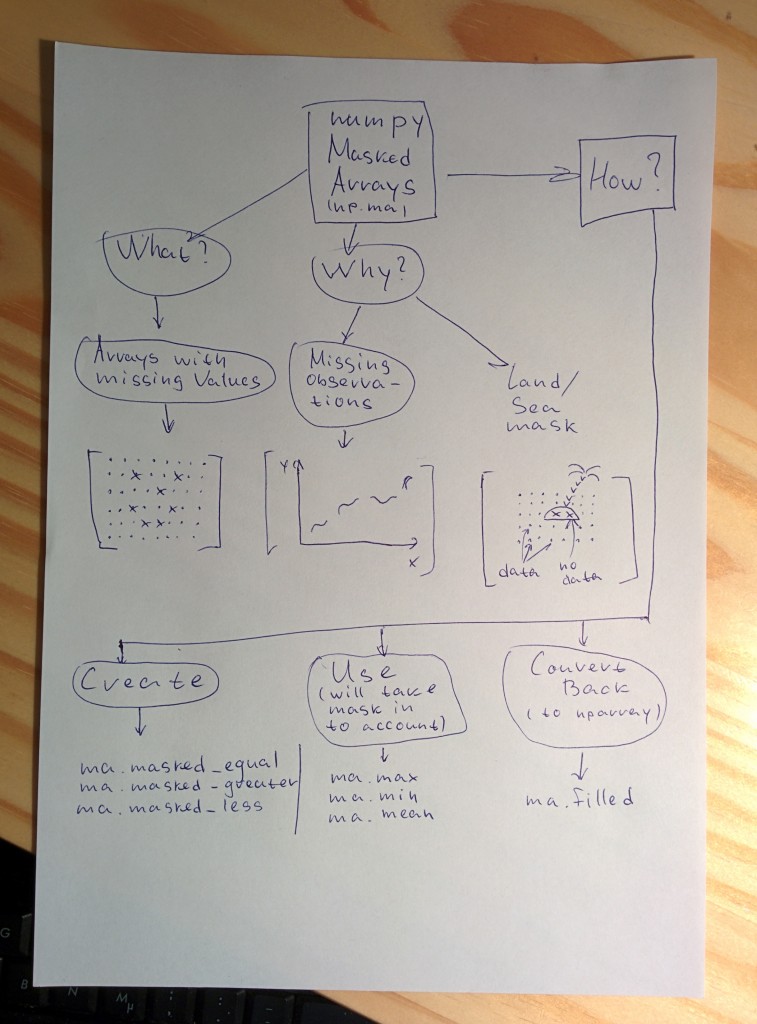 numpy
Masked
Arrays
(np.ma)
How?
What?
Why?
Arrays with
missing Values
Missing
observa-
tions
Land/
Sea
mask
Y
X
data
no
data
Create
Use
(will take
mask in
to account)
Convert
Back
(to nparray)
ma.masked_equal
ma.masked-greater
ma.masked_less
ma.max
ma.min
ma.mean
ma.filled
G
B
N
M µ
; ,
: .
_ -